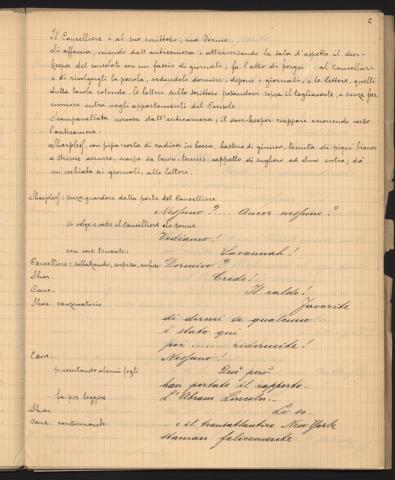 2
Il Cancelliere è al suo scrittoio, ma dorme.
Si affaccia, venendo dall'anticamera e attraversando la sala d'aspetto il door-
keeper del consolato con un fascio di giornali; fa l'atto di porger al Cancellier
e di rivolgergli la parola, vedendolo dormire, depone i giornali, e le lettere, quelli
sulla tavola rotonda, le lettere sullo scrittoio posandovi sopra il tagliacarte, e senza far
rumore entra negli appartamenti del Console.
Scampanellata nervosa dall'anticamera; il door-keeper riappare accorrendo verso
l'anticamera.
Sharpless, con pipa corta di radica in bocca, bastone di ginnco, tenuta di piqué bianco
a striscie azzurre, scarpe da lawn-tennis, cappello di sughero ad elmo entra; dà
un'occhiata ai giornali, alle lettere.
Sharpless: senza guardare dalla parte del Cancelliere
Nessuno?.... Ancor nessuno?
si volge e vede il Cancelliere che dorme
Vediamo!
con voce tonante:
Savannah!
Cancelliere: sobbalzando, sorpreso, confuso: Dormivo?
Shar.
Credo!
Canc.
Il caldo!
Shar. canzonatorio
Favorite
di dirmi se qualcuno
è stato qui
poi ridormite!
Canc.
Nessuno!
presentando alcuni fogli
Qui però
han portato il rapporto.
fa per leggere
L'Abram Lincoln...
Shar.
Lo so...
Canc. continuando
... e il transatlantico New York
staman felicemente